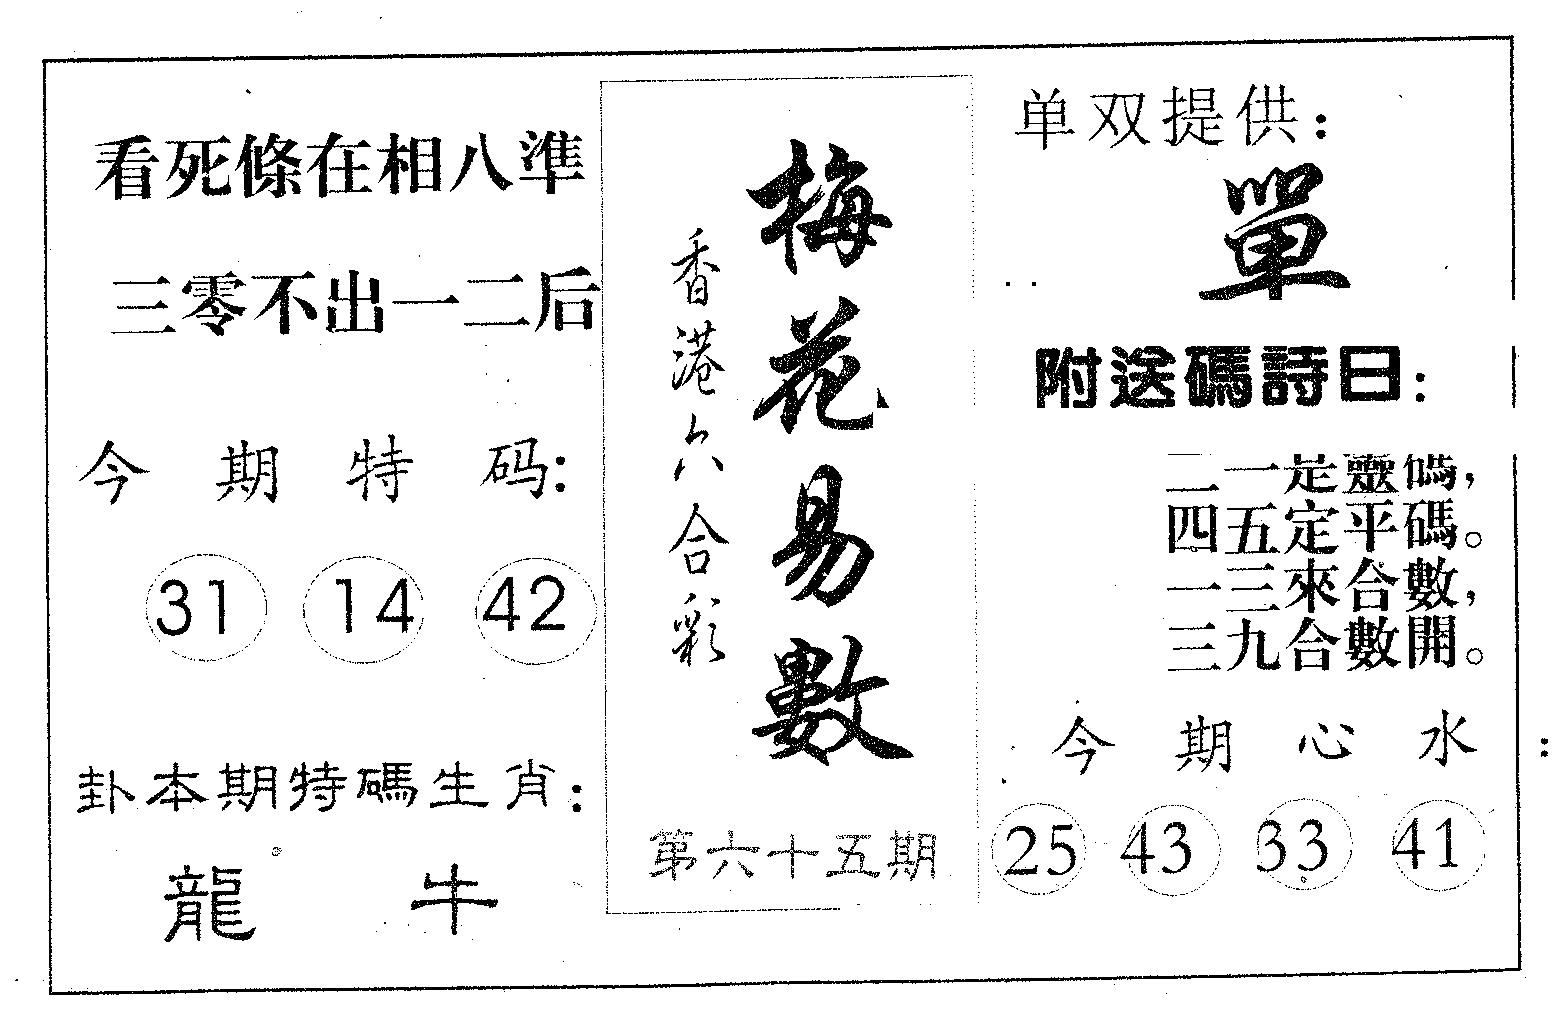 看死條在相八準
三零不出一二后
今期特码:
31 14 42
卦本期特碼生肖:
龍 牛
梅花易數
香港六合彩
第六十五期
单双提供:
單
附送碼詩曰:
二一是靈碼,
四五定平碼。
一三來合數,
三九合數開。
今期心水:
25 43 33 41